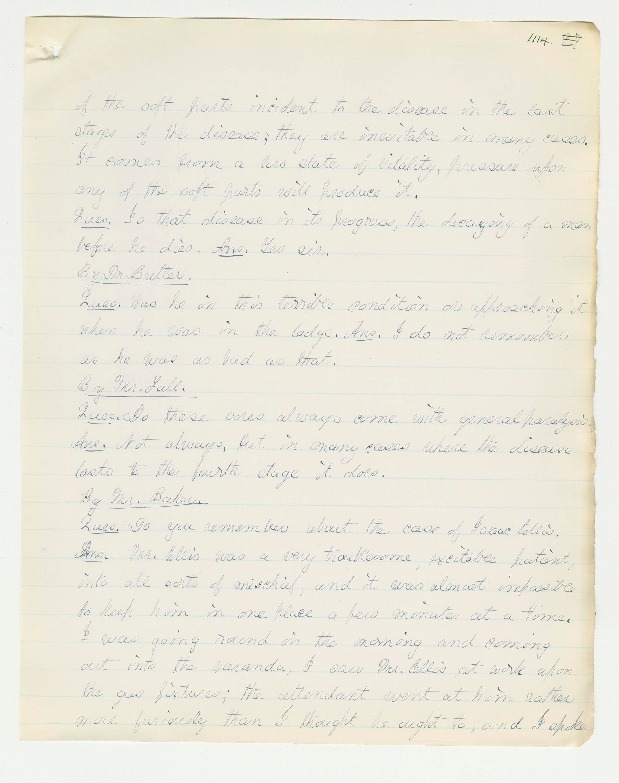 1114.
of the soft parts incident to the disease in the last
stages of the disease; they are inevitable in many cases.
It comes from a low state of vitality, pressure upon
any of the soft parts will produce it.
Ques. Is that disease in its progress, the decaying of a man
before he dies. Ans. Yes sir.
By Dr. Butler.
Ques. Was he in this terrible condition or approaching it
when he was in the lodge. Ans. I do not remember
as he was as bad as that.
By Mr. Hall.
Ques. Do these sores always come with general paralysis.
Ans. Not always, but in many cases where the disease
lasts to the fourth stage it does.
By Mr.
Ques. Do you remember about the case of Isaac Ellis.
Ans. Mr. Ellis was a very troublesome, excitable patient,
into all sorts of mischief, and it was almost impossible
to keep him in one place a few minutes at a time.
I was going round in the morning and coming
out into the varanda, I saw Mr. Ellis at work upon
the gas fixtures; the attendant went at him rather
more furiously than I thought he ought to, and I spoke